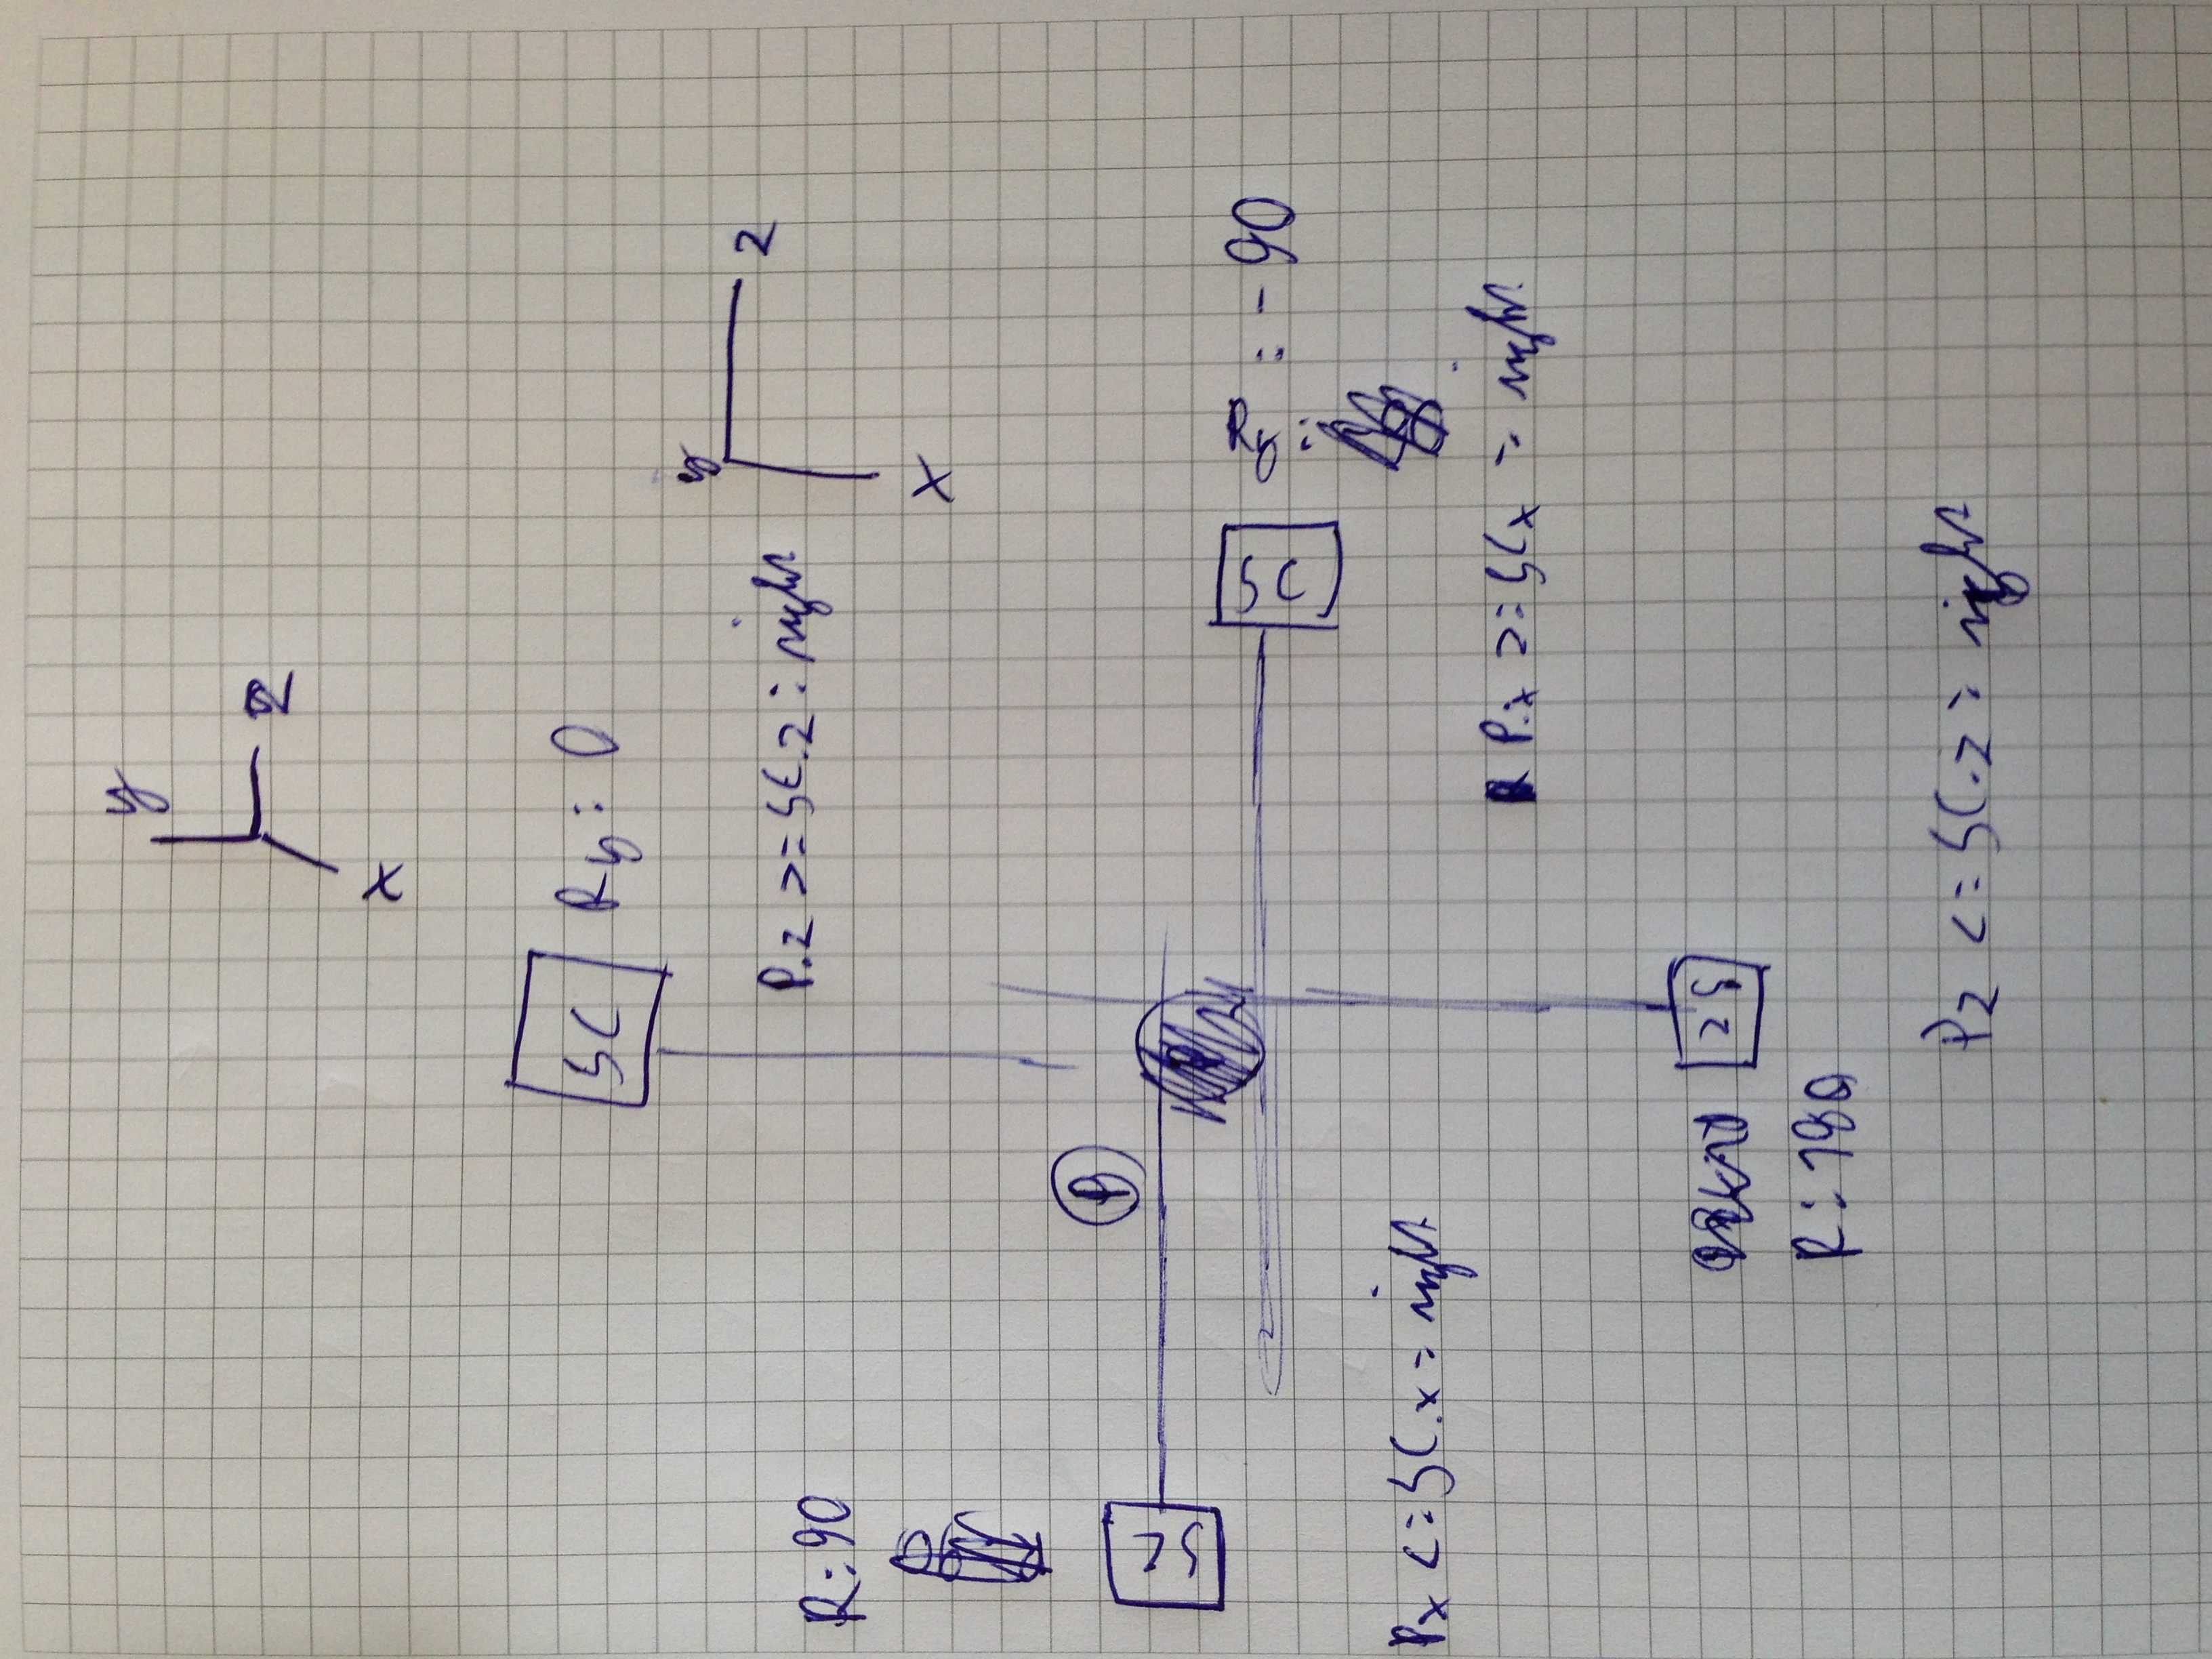 y
z
x
SC Ry: 0
y
z
P.z >= SC.z : right
R: 90
x
P
SC
SC Ry : -90
Px <= SC.x = right
P.x >= SCx = right
SC
R: 180
Pz <= SC.z = right